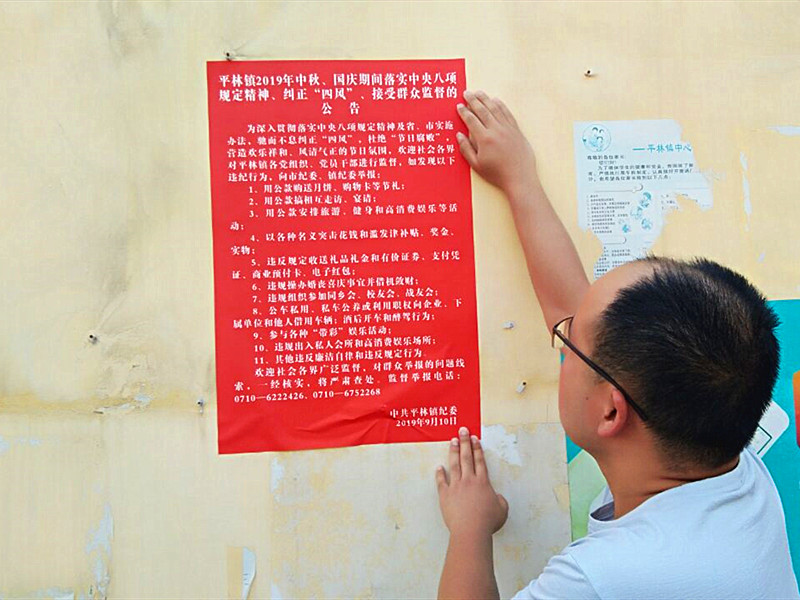 平林镇2019年中秋、国庆期间落实中央八项
规定精神、纠正“四风”、接受群众监督的
公 告
为深入贯彻落实中央八项规定精神及省、市实施
办法,驰而不息纠正“四风”,杜绝“节日腐败”,
营造欢乐祥和、风清气正的节日氛围,欢迎社会各界
对平林镇各党组织、党员干部进行监督,如发现以下
违纪行为,向市纪委、镇纪委举报:
1、用公款购送月饼、购物卡等节礼;
2、用公款搞相互走访、宴请;
3、用公款安排旅游、健身和高消费娱乐等活
动;
4、以各种名义突击花钱和滥发津补贴、奖金、
实物;
5、违反规定收送礼品礼金和有价证券、支付凭
证、商业预付卡、电子红包;
6、违规操办婚丧喜庆事宜并借机敛财;
7、违规组织参加同乡会、校友会、战友会;
8、公车私用、私车公养或利用职权向企业、下
属单位和他人借用车辆;酒后开车和醉驾行为;
9、参与各种“带彩”娱乐活动;
10、违规出入私人会所和高消费娱乐场所;
11、其他违反廉洁自律和违反规定行为。
欢迎社会各界广泛监督,对群众举报的问题线
索,一经核实,将严肃查处。监督举报电话:
0710—6222426、0710—6752268
中共平林镇纪委
2019年9月10日
平林镇中心